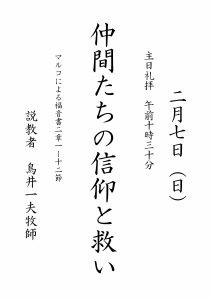 二月七日（日）
主日礼拝　午前十時三十分
仲間たちの信仰と救い
マルコによる福音書二章一ー十二節
説教者　鳥井一夫牧師